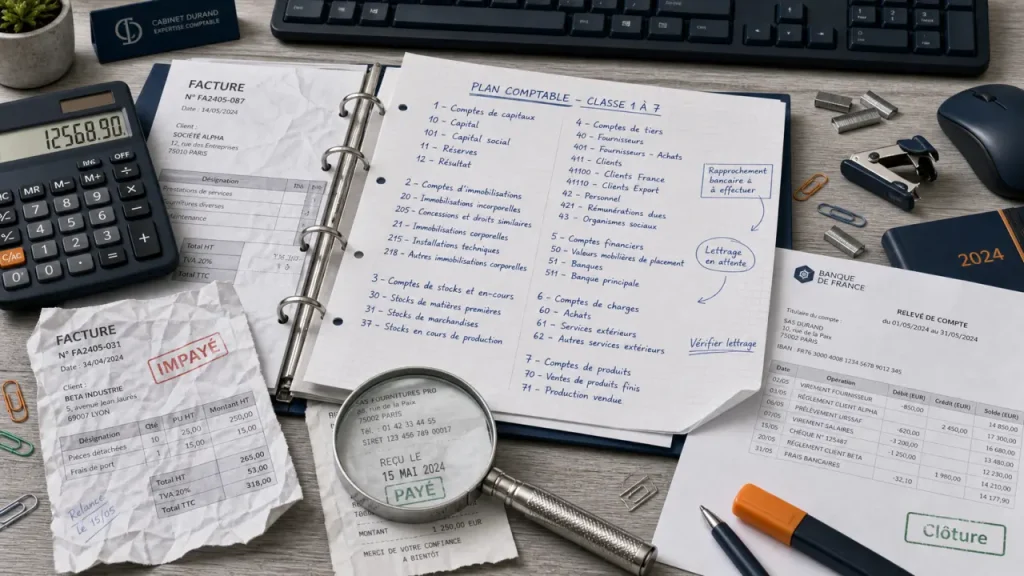 CABINET DURAND
EXPERTISE COMPTABLE
12568.90
MRC
OFF
MR
M-
M+
C/AC
FACTURE
N° FA2405-087
Date : 14/05/2024
Client :
SOCIÉTÉ ALPHA
12, rue des Entreprises
75010 PARIS
Désignation
Prestations de services
Fournitures diverses
Maintenance
Total HT
TVA 20%
Total TTC
PLAN COMPTABLE - CLASSE 1 À 7
1 - Comptes de capitaux
10 - Capital
101 - Capital social
11 - Réserves
12 - Résultat
2 - Comptes d'immobilisations
20 - Immobilisations incorporelles
205 - Concessions et droits similaires
21 - Immobilisations corporelles
215 - Installations techniques
218 - Autres immobilisations corporelles
3 - Comptes de stocks et en-cours
30 - Stocks de matières premières
31 - Stocks de marchandises
37 - Stocks en cours de production
4 - Comptes de tiers
40 - Fournisseurs
401 - Fournisseurs - Achats
411 - Clients
41100 - Clients France
41110 - Clients Export
42 - Personnel
421 - Rémunérations dues
43 - Organismes sociaux
5 - Comptes financiers
50 - Valeurs mobilières de placement
51 - Banques
511 - Banque principale
6 - Comptes de charges
60 - Achats
61 - Services extérieurs
62 - Autres services extérieurs
7 - Comptes de produits
70 - Ventes de produits finis
71 - Production vendue
Rapprochement
bancaire à
à effectuer
Lettrage
en attente
Vérifier lettrage
2024
FACTURE
N° FA2405-031
IMPAYÉ
Client :
BETA INDUSTRIE
5, avenue Jean Jaurès
69007 LYON
Désignation Qté PU HT Montant HT
Pièces détachées 10 25,00 250,00
Frais de port 1 15,00 15,00
Total HT 265,00
TVA 20% 53,00
Total TTC 318,00
Relance
le 15/05
SAS FOURNITURES PRO
rue de la Paix
75002 PARIS
Tél. : 01 42 33 44 55
SIRET 123 456 789 00017
REÇU LE
15 MAI 2024
PAYÉ
MONTANT 1 250,00 EUR
MERCI DE VOTRE CONFIANCE
A BIENTÔT
BANQUE
DE FRANCE
RELEVÉ DE COMPTE
du 01/05/2024 au 31/05/2024
Titulaire du compte
SAS DURAND
10, rue de la Paix
75002 PARIS
Date Opération Débit (EUR) Crédit (EUR) Solde (EUR)
02/05 VIREMENT FOURNISSEUR -850,00 14 850,00
RÉGLEMENT CLIENT ALPHA 2 450,00 17 300,00
PRÉLÈVEMENT URSSAF -620,00 16 680,00
VIREMENT SALAIRES
CHÈQUE N°
RÉGLEMENT CLIENT BETA
31/05 FRAIS BANCAIRES
Clôture